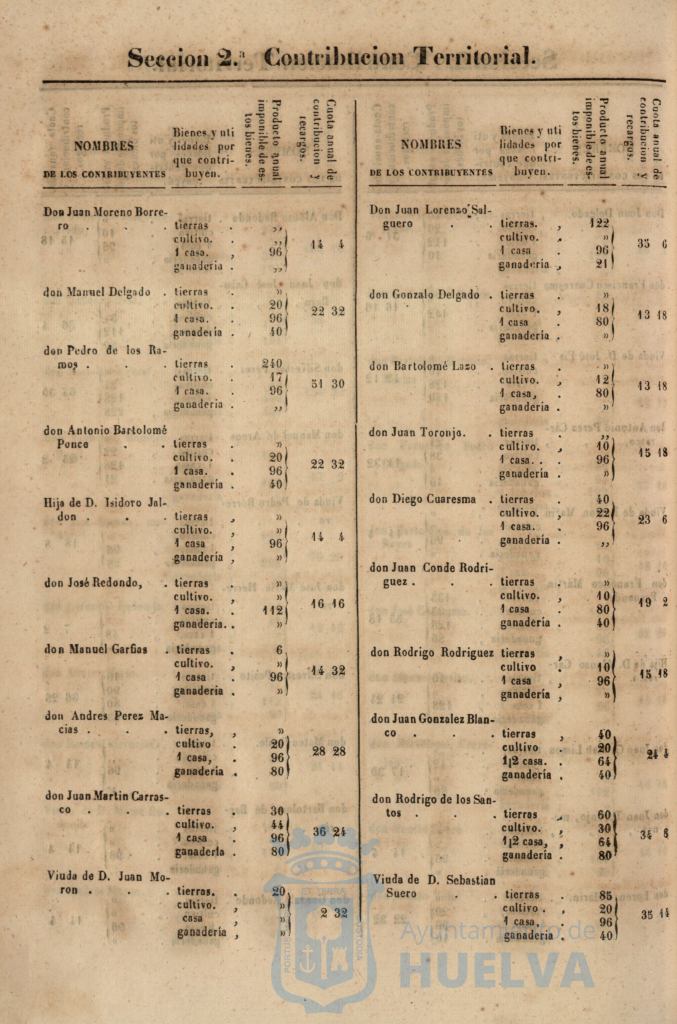 Seccion 2.ª Contribucion Territorial.
NOMBRES
DE LOS CONTRIBUYENTES
Bienes y uti
lidades por
que contri-
buyen.
Producto anual
imponible de es-
tos bienes.
Cuota anual de
contribucion y
recargos.
Don Juan Moreno Borre-
ro . . . tierras . ,,
cultivo. . ,,
1 casa . 96
ganaderia . ,,
14 4
don Manuel Delgado . tierras . »
cultivo. . 20
1 casa. . 96
ganaderia . 40
22 32
don Pedro de los Ra-
mos . . . tierras . 240
cultivo. . 17
1 casa. . 96
ganaderia . ,,
51 30
don Antonio Bartolomé
Ponce . . tierras . »
cultivo. . 20
1 casa. . 96
ganaderia . 40
22 32
Hija de D. Isidoro Jal-
don . . . tierras , »
cultivo. , »
1 casa , 96
ganaderia , »
14 4
don José Redondo, . tierras . »
cultivo. , »
1 casa. . 112
ganaderia. . »
16 16
don Manuel Garfias . tierras . 6
cultivo. , »
1 casa , 96
ganaderia . »
14 32
don Andres Perez Ma-
cias . . . tierras, , »
cultivo . 20
1 casa, . 96
ganaderia . 80
28 28
don Juan Martin Carras-
co . . . tierras . 30
cultivo. , 44
1 casa , 96
ganaderia . 80
36 24
Viuda de D. Juan Mo-
ron . . . tierras. . 20
cultivo. , »
casa , »
ganadería , »
2 32
NOMBRES
DE LOS CONTRIBUYENTES
Bienes y uti
lidades por
que contri-
buyen.
Producto anual
imponible de es-
tos bienes.
Cuota anual de
contribucion y
recargos.
Don Juan Lorenzo Sal-
guero . . tierras. , 122
cultivo. . »
1 casa . 96
ganaderia , 21
35 6
don Gonzalo Delgado . tierras . »
cultivo. , 18
1 casa . 80
ganaderia . »
13 18
don Bartolomé Lazo . tierras . »
cultivo. , 12
1 casa, . 80
ganaderia . »
13 18
don Juan Toronjo. . tierras . ,,
cultivo. , 10
1 casa. . . 96
ganaderia . »
15 18
don Diego Cuaresma . tierras . 40
cultivo. , 22
1 casa. . 96
ganaderia . ,,
23 6
don Juan Conde Rodri-
guez . . . tierras . »
cultivo. , 10
1 casa . 80
ganaderia . 40
19 2
don Rodrigo Rodriguez tierras , »
cultivo , 10
1 casa , 96
ganadería , »
15 18
don Juan Gonzalez Blan-
co . . . tierras , 40
cultivo . 20
1|2 casa. . 64
ganaderia . 40
24 4
don Rodrigo de los San-
tos . . . tierras , 60
cultivo. , 30
1|2 casa, , 64
ganaderia . 80
34 6
Viuda de D. Sebastian
Suero . tierras . 85
cultivo . , 20
1 casa, . 96
ganaderia . 40
35 14
Ayuntamiento de
HUELVA